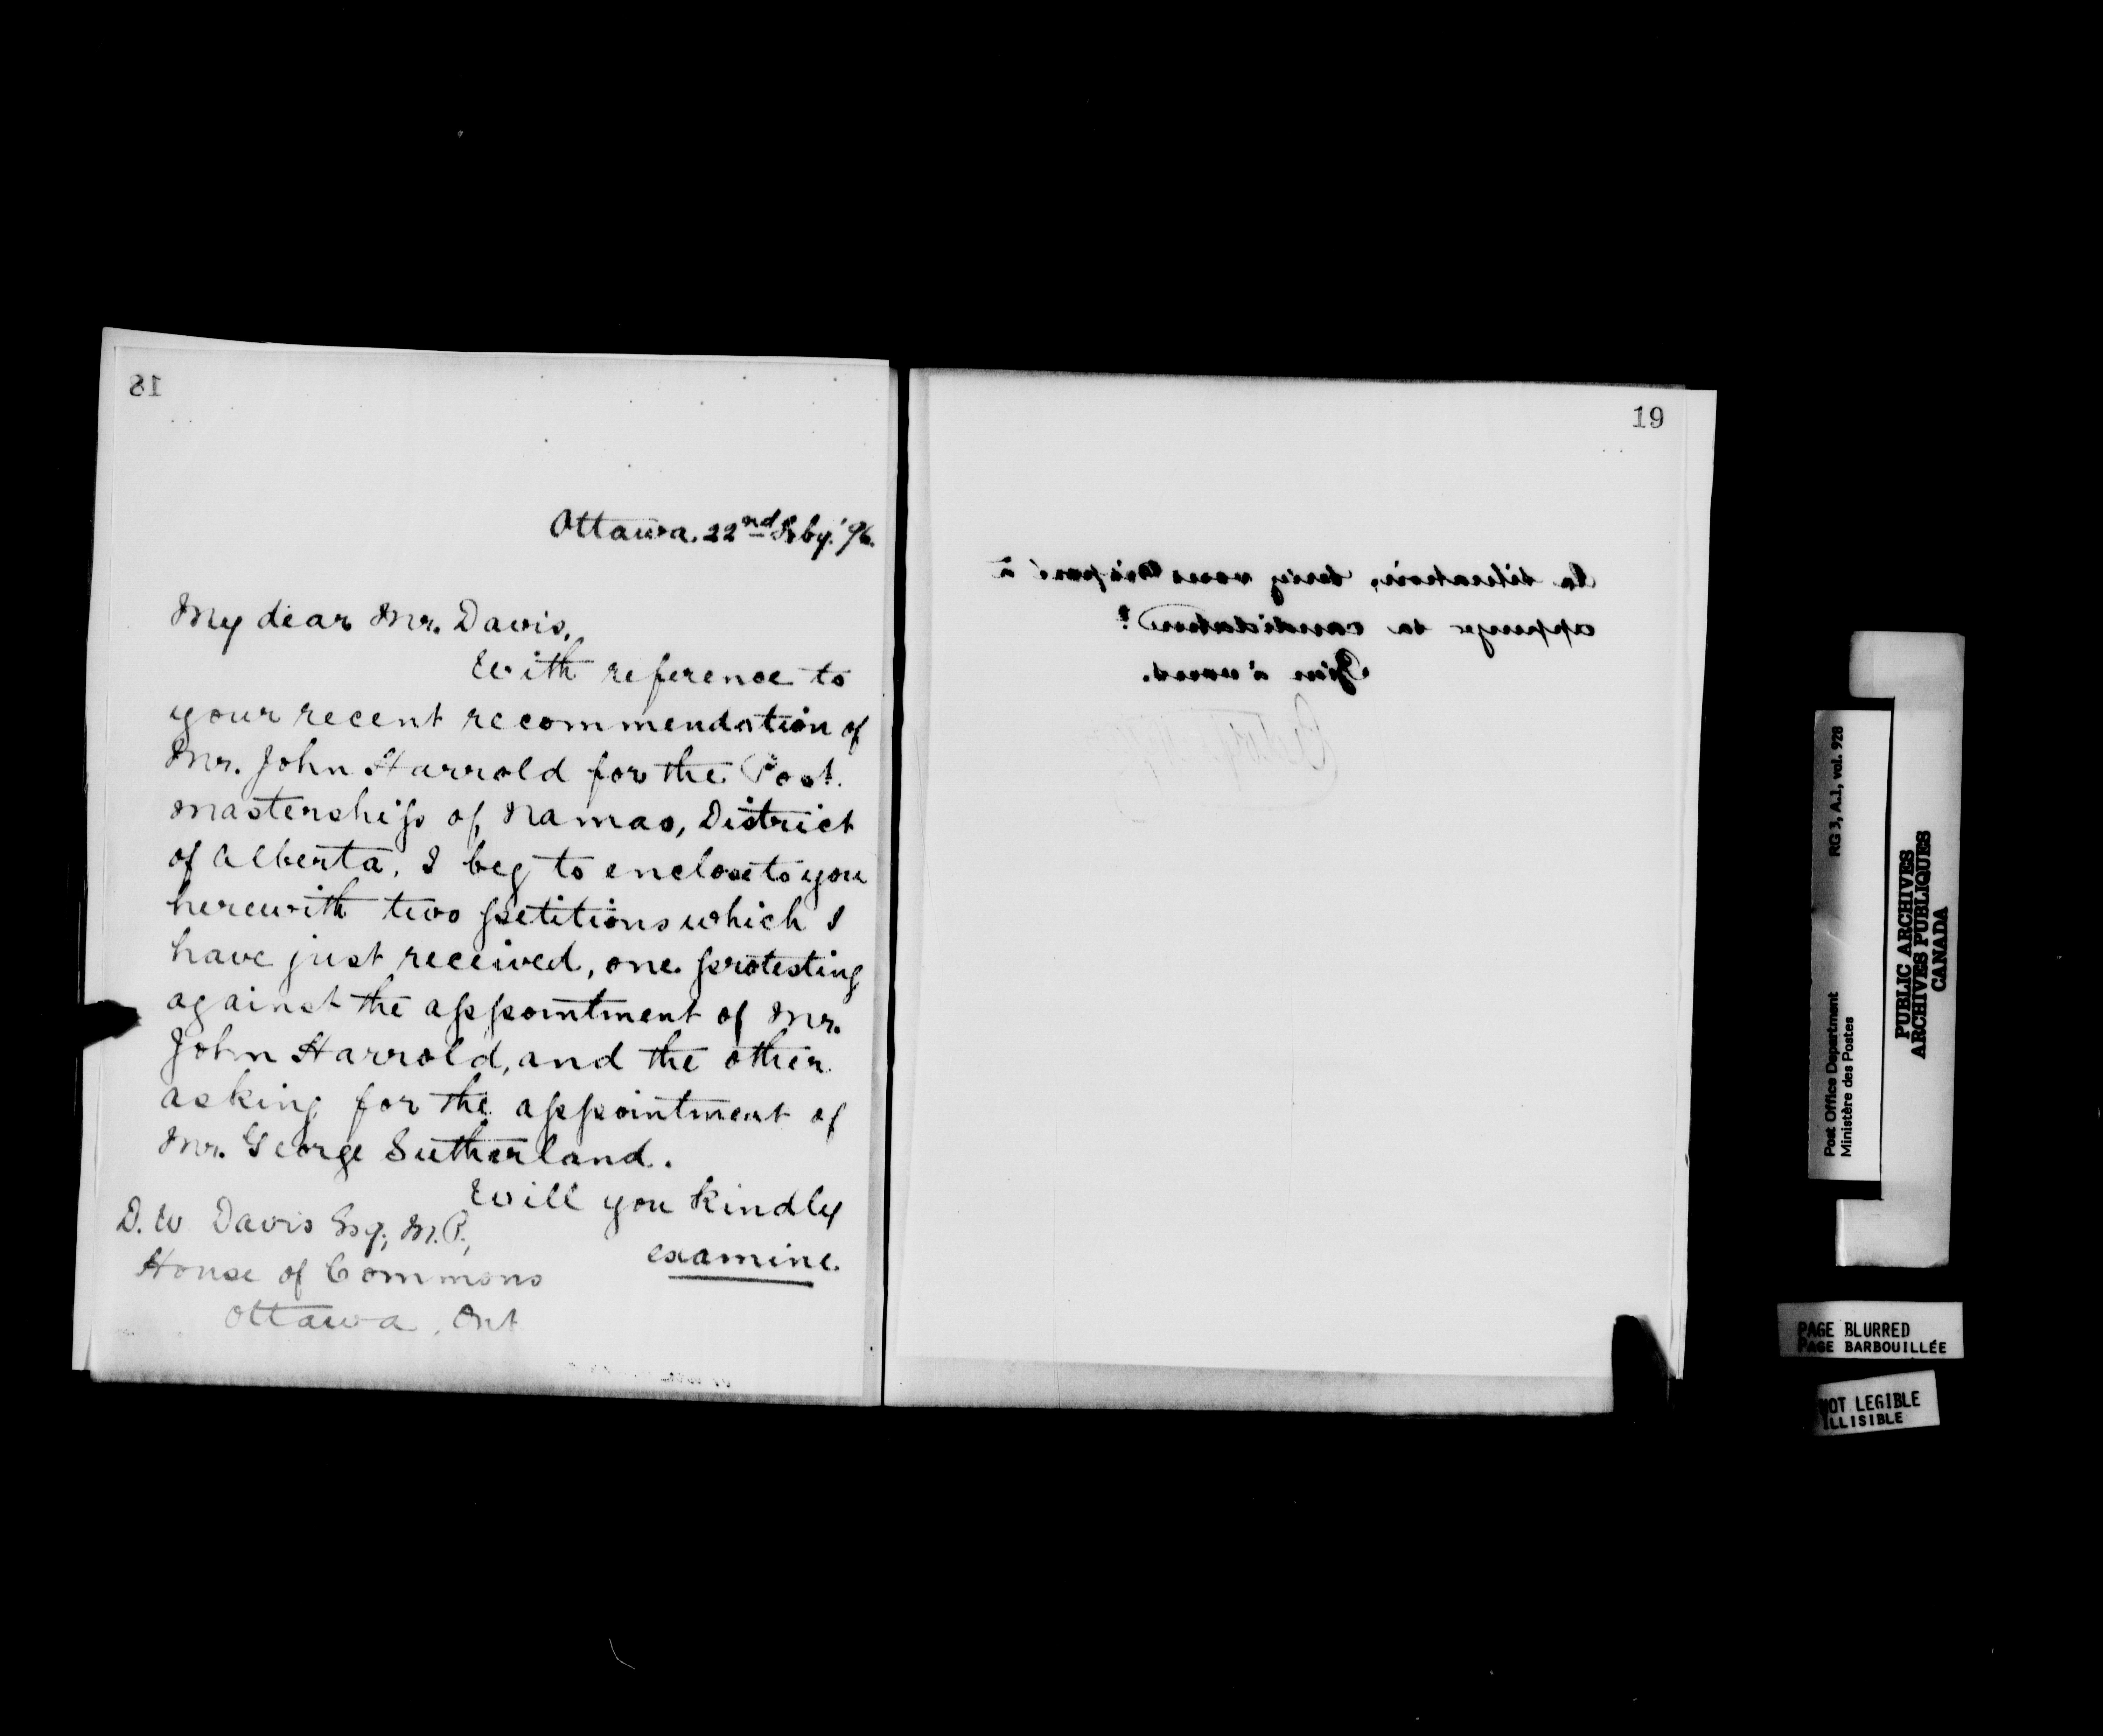 18
Ottawa. 22nd Feby. '96.
My dear Mr. Davis,
With reference to
your recent recommendation of
Mr. John Harrold for the Post
mastership of Namao, District
of Alberta, I beg to enclose to you
herewith two petitions which I
have just received, one protesting
against the appointment of Mr.
John Harrold, and the other
asking for the appointment of
Mr. George Sutherland.
Will you kindly
examine.
D. W Davis Esq., M.P.,
House of Commons
Ottawa, Ont
19
la situation, seriez vous disposé à
appuyer sa candidature?
Bien à vous.
RG 3, A.1, vol. 928
Post Office Department
Ministère des Postes
PUBLIC ARCHIVES
ARCHIVES PUBLIQUES
CANADA
PAGE BLURRED
PAGE BARBOUILLÉE
NOT LEGIBLE
ILLISIBLE